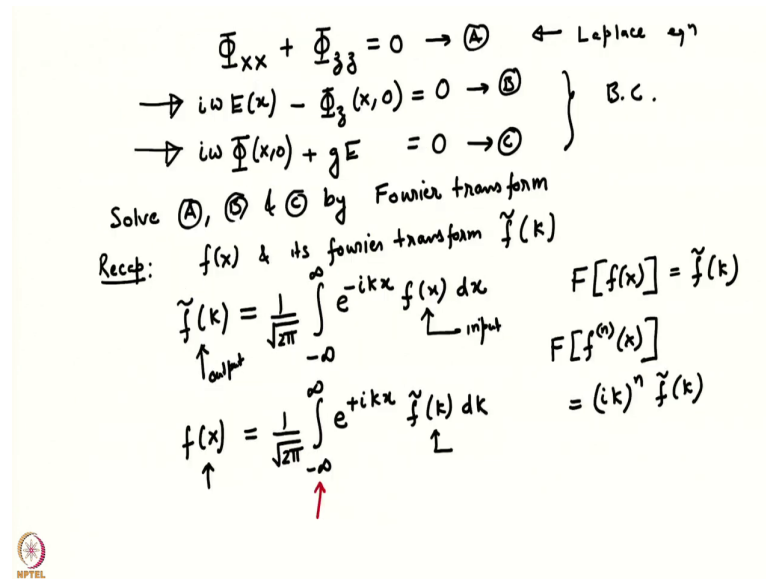 Φ_xx + Φ_zz = 0 → Ⓐ ← Laplace eqn
→ iωE(x) − Φ_z(x,0) = 0 → Ⓑ } B.C.
→ iωΦ(x,0) + gE = 0 → Ⓒ
Solve Ⓐ, Ⓑ & Ⓒ by Fourier transform
Recap: f(x) & its fourier transform f̃(k)
f̃(k) = 1/√2π ∫_{-∞}^{∞} e^{-ikx} f(x) dx
F[f(x)] = f̃(k)
↑ output
↑ input
F[f^{(n)}(x)]
= (ik)^n f̃(k)
f(x) = 1/√2π ∫_{-∞}^{∞} e^{+ikx} f̃(k) dk
NPTEL